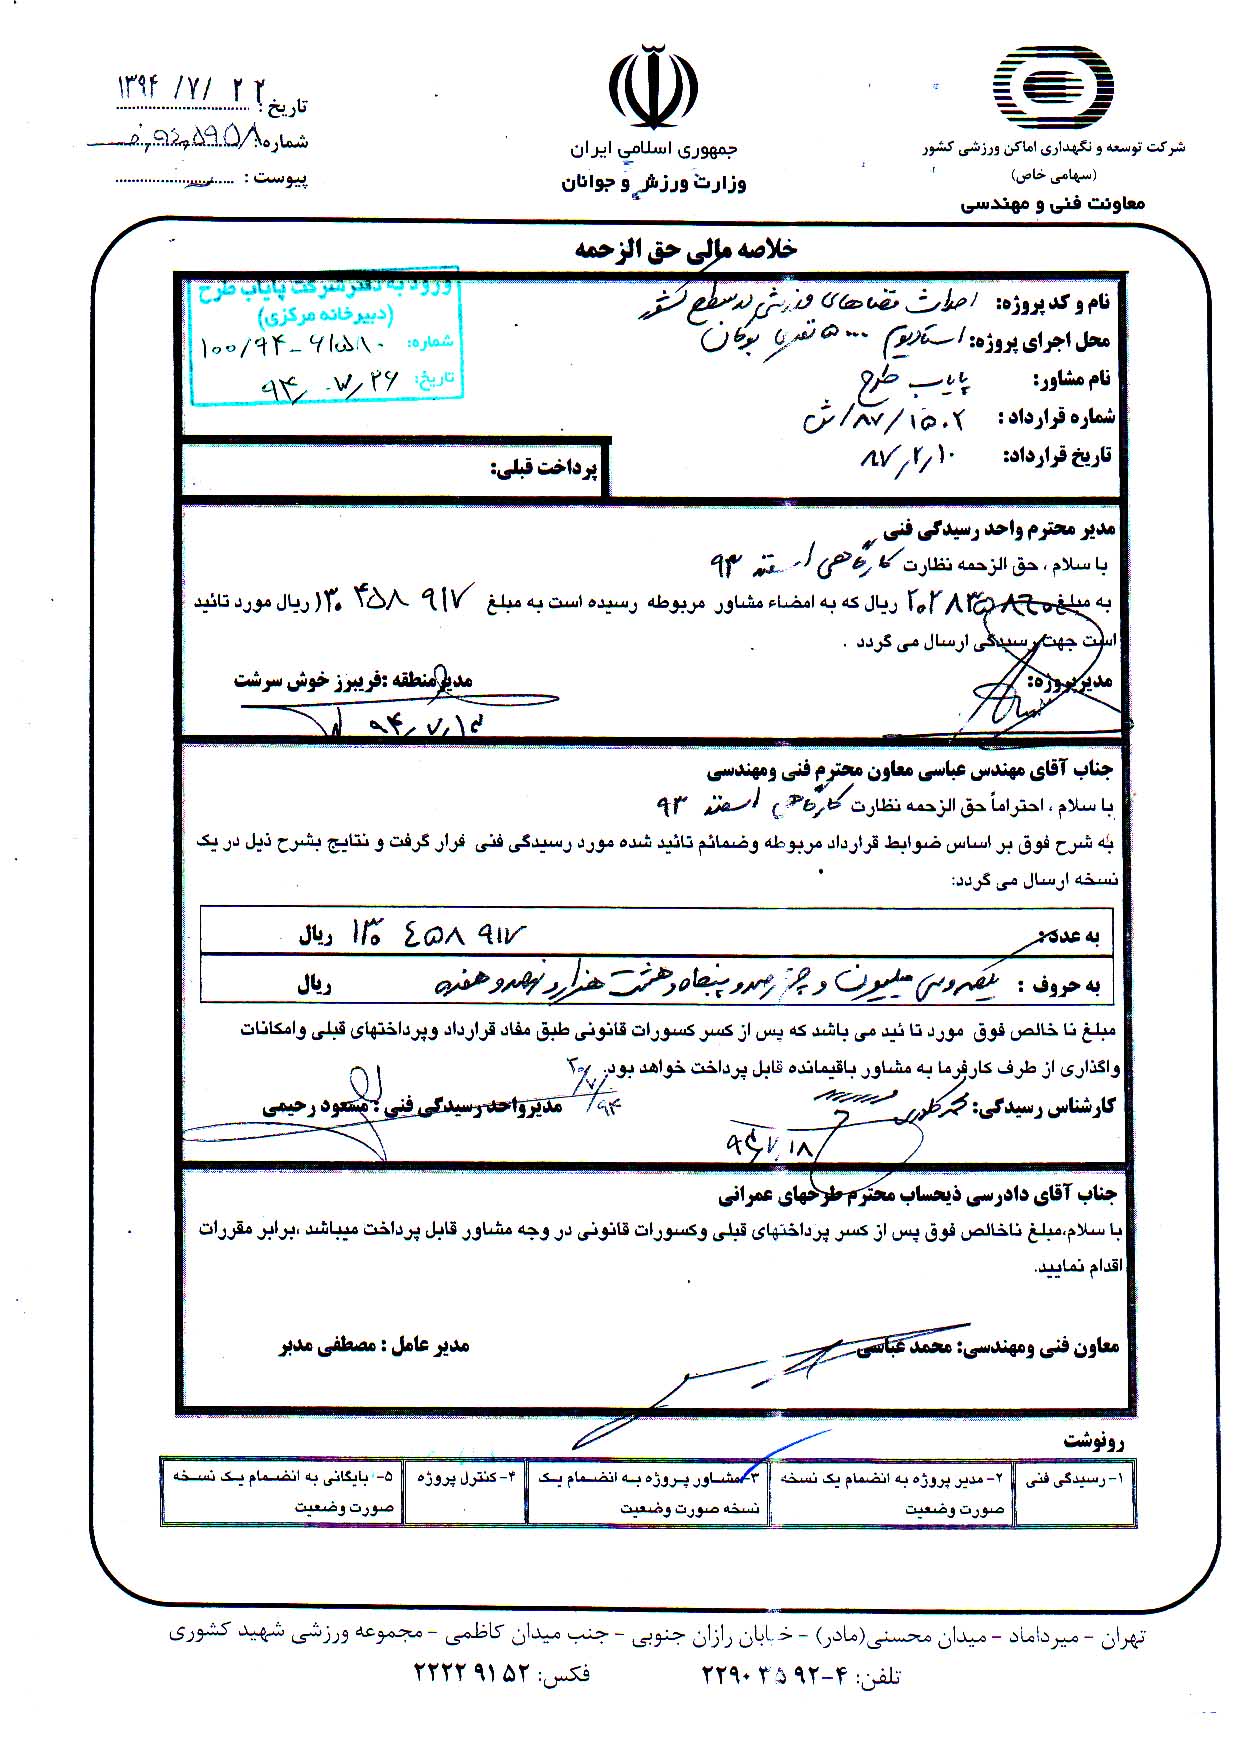 تاریخ: ۱۳۹۴/۷/۲۲
شماره:
پیوست:
جمهوری اسلامی ایران
وزارت ورزش و جوانان
شرکت توسعه و نگهداری اماکن ورزشی کشور
(سهامی خاص)
معاونت فنی و مهندسی
خلاصه مالی حق الزحمه
ورود به دفتر شرکت پایاب طرح
(دبیرخانه مرکزی)
شماره:
تاریخ: ۹۴/۰۷/۲۶
نام و کد پروژه: احداث فضاهای ورزشی در سطح کشور
محل اجرای پروژه: استادیوم ۵۰۰۰ نفری بوکان
نام مشاور: پایاب طرح
شماره قرارداد: ۸۷/۱۵۰۲/ش
تاریخ قرارداد: ۸۷/۲/۱۰
پرداخت قبلی:
مدیر محترم واحد رسیدگی فنی
با سلام ، حق الزحمه نظارت کارگاهی اسفند ۹۳
به مبلغ ریال که به امضاء مشاور مربوطه رسیده است به مبلغ ۱۳۰ ۴۵۸ ۹۱۷ ریال مورد تائید
است جهت رسیدگی ارسال می گردد .
مدیر پروژه:
مدیر منطقه :فریبرز خوش سرشت
۹۴/۷/۱۳
جناب آقای مهندس عباسی معاون محترم فنی ومهندسی
با سلام ، احتراماً حق الزحمه نظارت کارگاهی اسفند ۹۳
به شرح فوق بر اساس ضوابط قرارداد مربوطه وضمائم تائید شده مورد رسیدگی فنی قرار گرفت و نتایج بشرح ذیل در یک
نسخه ارسال می گردد:
به عدد: ۱۳۰ ۴۵۸ ۹۱۷ ریال
به حروف : یکصد و سی میلیون و چهارصد و پنجاه و هشت هزار و نهصد و هفده ریال
مبلغ نا خالص فوق مورد تا ئید می باشد که پس از کسر کسورات قانونی طبق مفاد قرارداد وپرداختهای قبلی وامکانات
واگذاری از طرف کارفرما به مشاور باقیمانده قابل پرداخت خواهد بود.
کارشناس رسیدگی:
۹۴/۷/۱۸
مدیرواحد رسیدگی فنی : مسعود رحیمی
۹۴/۷/۲۰
جناب آقای دادرسی ذیحساب محترم طرحهای عمرانی
با سلام،مبلغ ناخالص فوق پس از کسر پرداختهای قبلی وکسورات قانونی در وجه مشاور قابل پرداخت میباشد ،برابر مقررات
اقدام نمایید.
معاون فنی ومهندسی: محمد عباسی
مدیر عامل : مصطفی مدبر
رونوشت
۱- رسیدگی فنی
۲- مدیر پروژه به انضمام یک نسخه
صورت وضعیت
۳- مشاور پروژه به انضمام یک
نسخه صورت وضعیت
۴- کنترل پروژه
۵- بایگانی به انضمام یک نسخه
صورت وضعیت
تهران - میرداماد - میدان محسنی(مادر) - خیابان رازان جنوبی - جنب میدان کاظمی - مجموعه ورزشی شهید کشوری
تلفن: ۴-۲۲۹۰۳۵۹۲ فکس: ۲۲۲۲۹۱۵۲